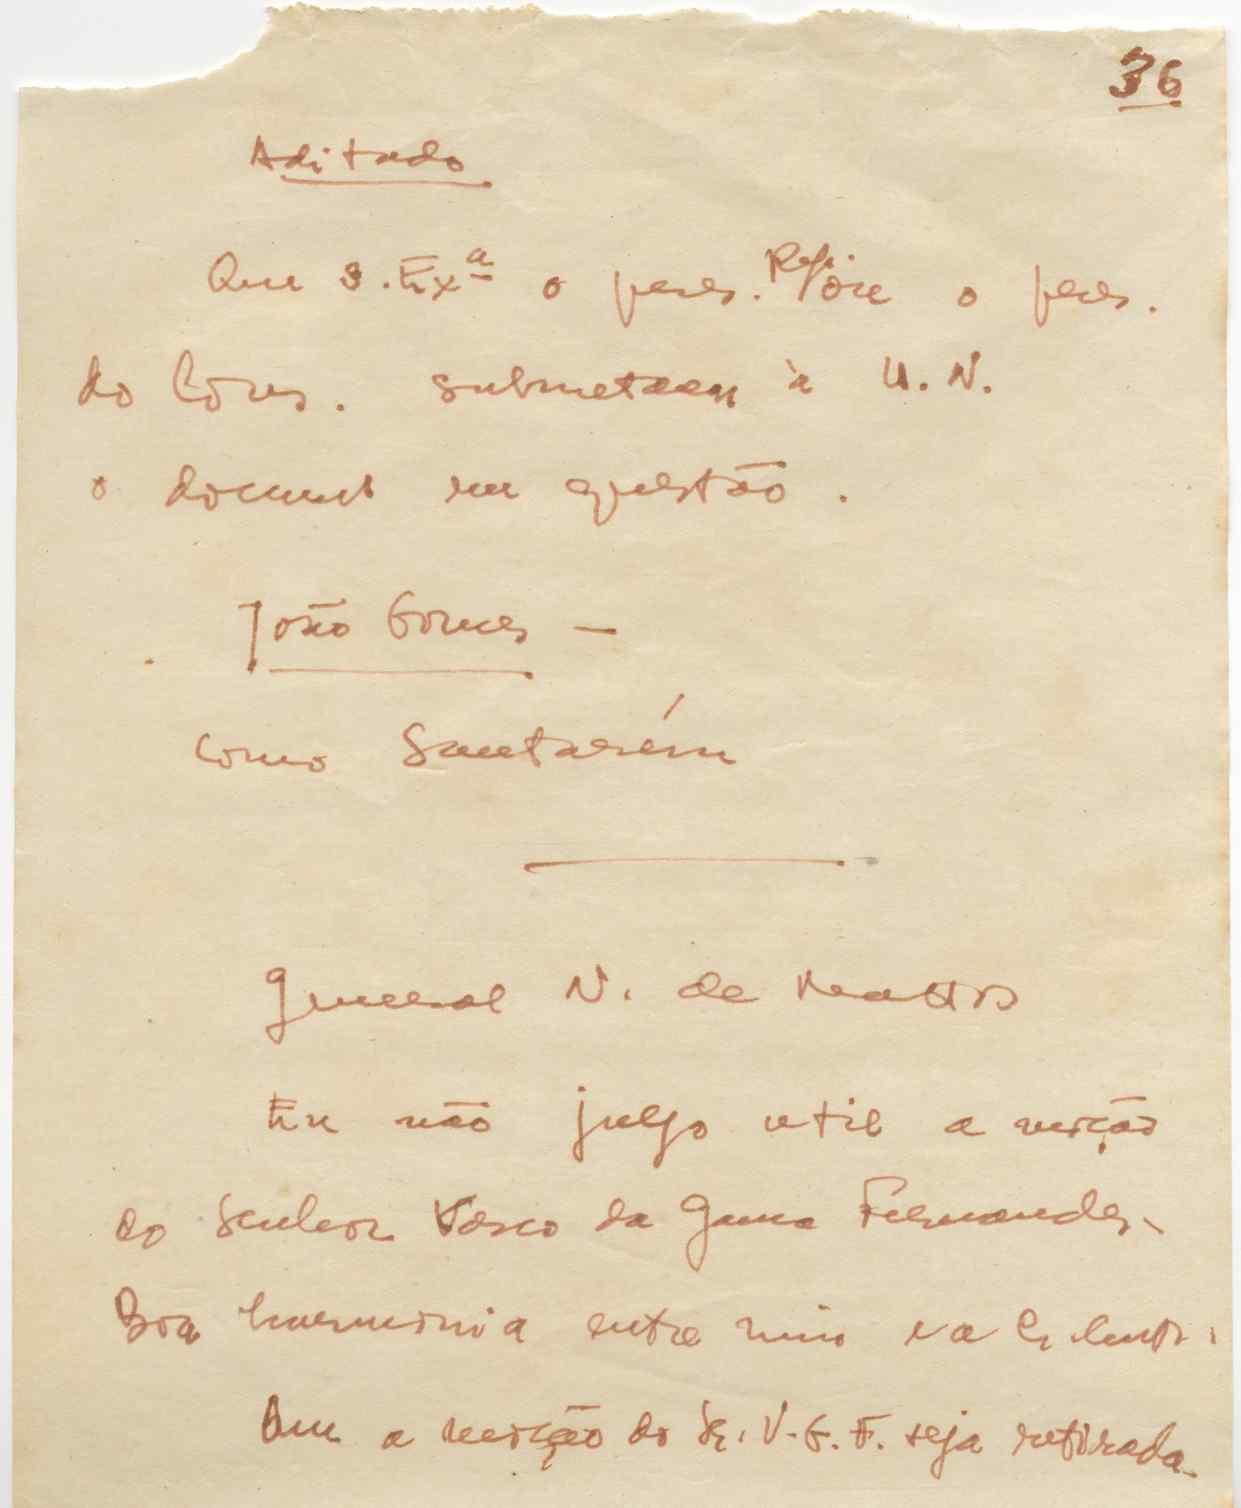 36
Aditado
Que S. Exª o pres. Rep. ou o pres.
do Cons. submetam à U. N.
o document em questão.
João Gomes —
como Santarém
General N. de Mattos
Eu não julgo util a moção
do senhor Vasco da Gama Fernandes.
Boa harmonia entre
a moção do Sr. V. G. F. seja retirada.